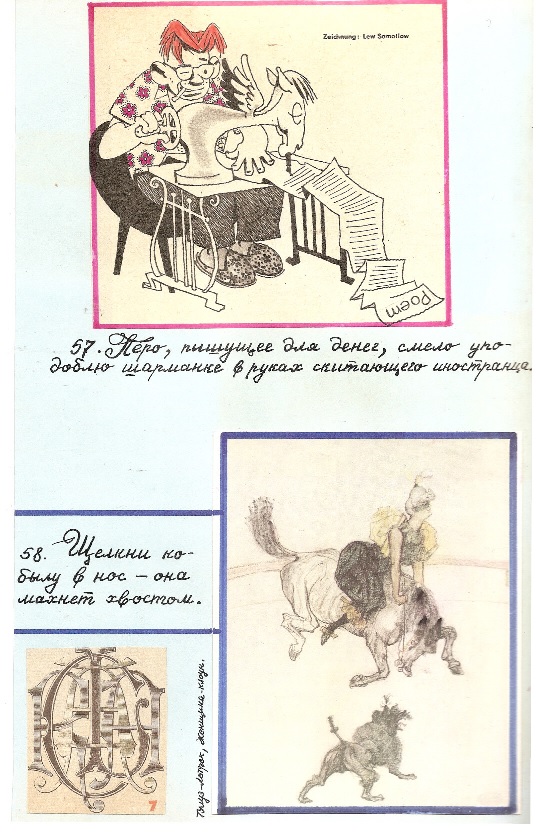 Zeichnung: Lew Samoilow
Poem
57. Перо, пишущее для денег, смело упо-
доблю шарманке в руках скитающего иностранца.
58. Щелкни ко-
былу в нос – она
махнет хвостом.
Тулуз-Лотрек, женщина-клоун.
7